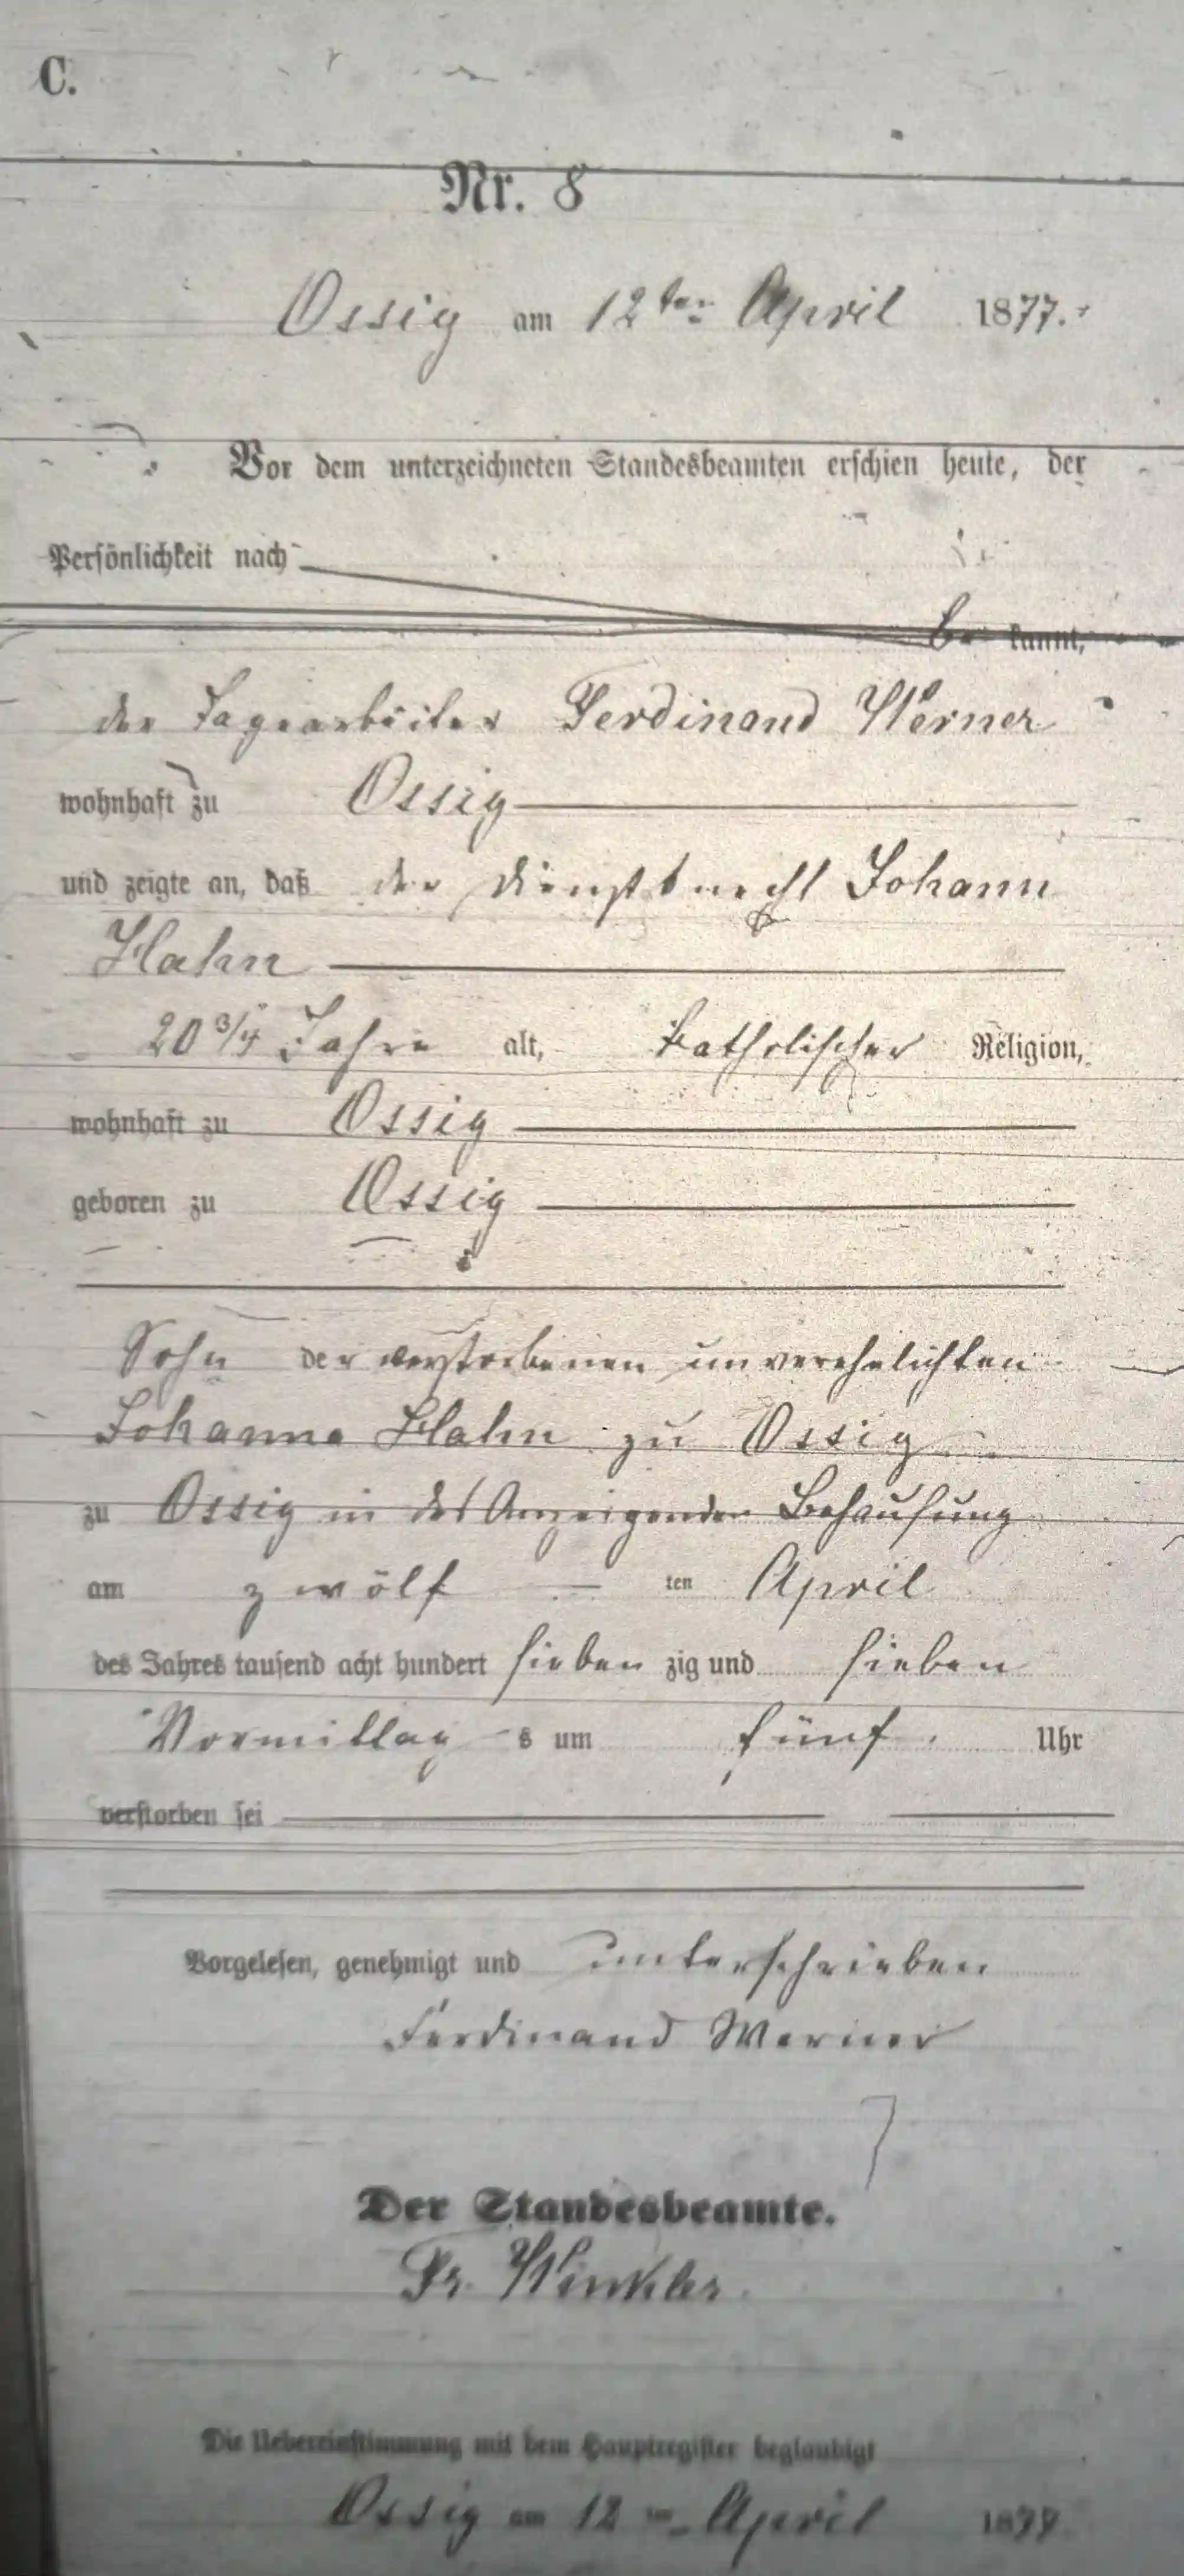 C.
Nr. 8
Ossig am 12ten April 1877.
Vor dem unterzeichneten Standesbeamten erschien heute, der
Persönlichkeit nach
be kannt,
der Tagearbeiter Ferdinand Werner
wohnhaft zu Ossig
und zeigte an, daß der Dienstknecht Johann
Hahn
20 3/4 Jahre alt, katholischer Religion,
wohnhaft zu Ossig
geboren zu Ossig
Sohn der verstorbenen unverehelichten
Johanna Hahn zu Ossig
zu Ossig in des Anzeigenden Behausung
am zwölf ten April
des Jahres tausend acht hundert sieben zig und sieben
Vormittag s um fünf Uhr
verstorben sei
Vorgelesen, genehmigt und unterschrieben
Ferdinand Werner
Der Standesbeamte.
Fr. Winkler.
Die Uebereinstimmung mit dem Hauptregister beglaubigt
Ossig am 12ten April 1877